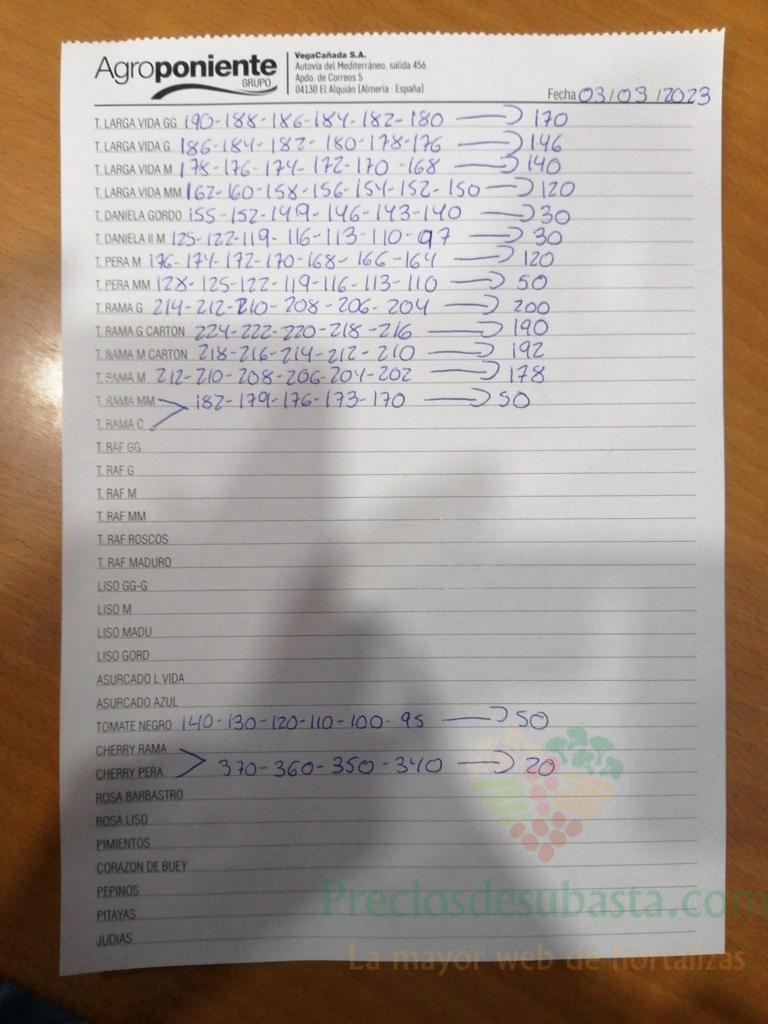 Agroponiente
GRUPO
VegaCañada S.A.
Autovía del Mediterráneo, salida 456
Apdo. de Correos 5
04130 El Alquián (Almería - España)
Fecha 03/03/2023
T. LARGA VIDA GG 190-188-186-184-182-180 → 170
T. LARGA VIDA G 186-184-182-180-178-176 → 146
T. LARGA VIDA M 178-176-174-172-170-168 → 140
T. LARGA VIDA MM 162-160-158-156-154-152-150 → 120
T. DANIELA GORDO 155-152-149-146-143-140 → 30
T. DANIELA II M 125-122-119-116-113-110-97 → 30
T. PERA M 176-174-172-170-168-166-164 → 120
T. PERA MM 128-125-122-119-116-113-110 → 50
T. RAMA G 214-212-210-208-206-204 → 200
T. RAMA G CARTON 224-222-220-218-216 → 190
T. RAMA M CARTON 218-216-214-212-210 → 192
T. RAMA M 212-210-208-206-204-202 → 178
T. RAMA MM > 182-179-176-173-170 → 50
T. RAMA C.
T. RAF GG
T. RAF G
T. RAF M
T. RAF MM
T. RAF ROSCOS
T. RAF MADURO
LISO GG-G
LISO M
LISO MADU
LISO GORD
ASURCADO L VIDA
ASURCADO AZUL
TOMATE NEGRO 140-130-120-110-100-95 → 50
CHERRY RAMA
CHERRY PERA > 370-360-350-340 → 20
ROSA BARBASTRO
ROSA LISO
PIMIENTOS
CORAZON DE BUEY
PEPINOS
PITAYAS
JUDIAS
Preciosdesubasta.com
La mayor web de hortalizas